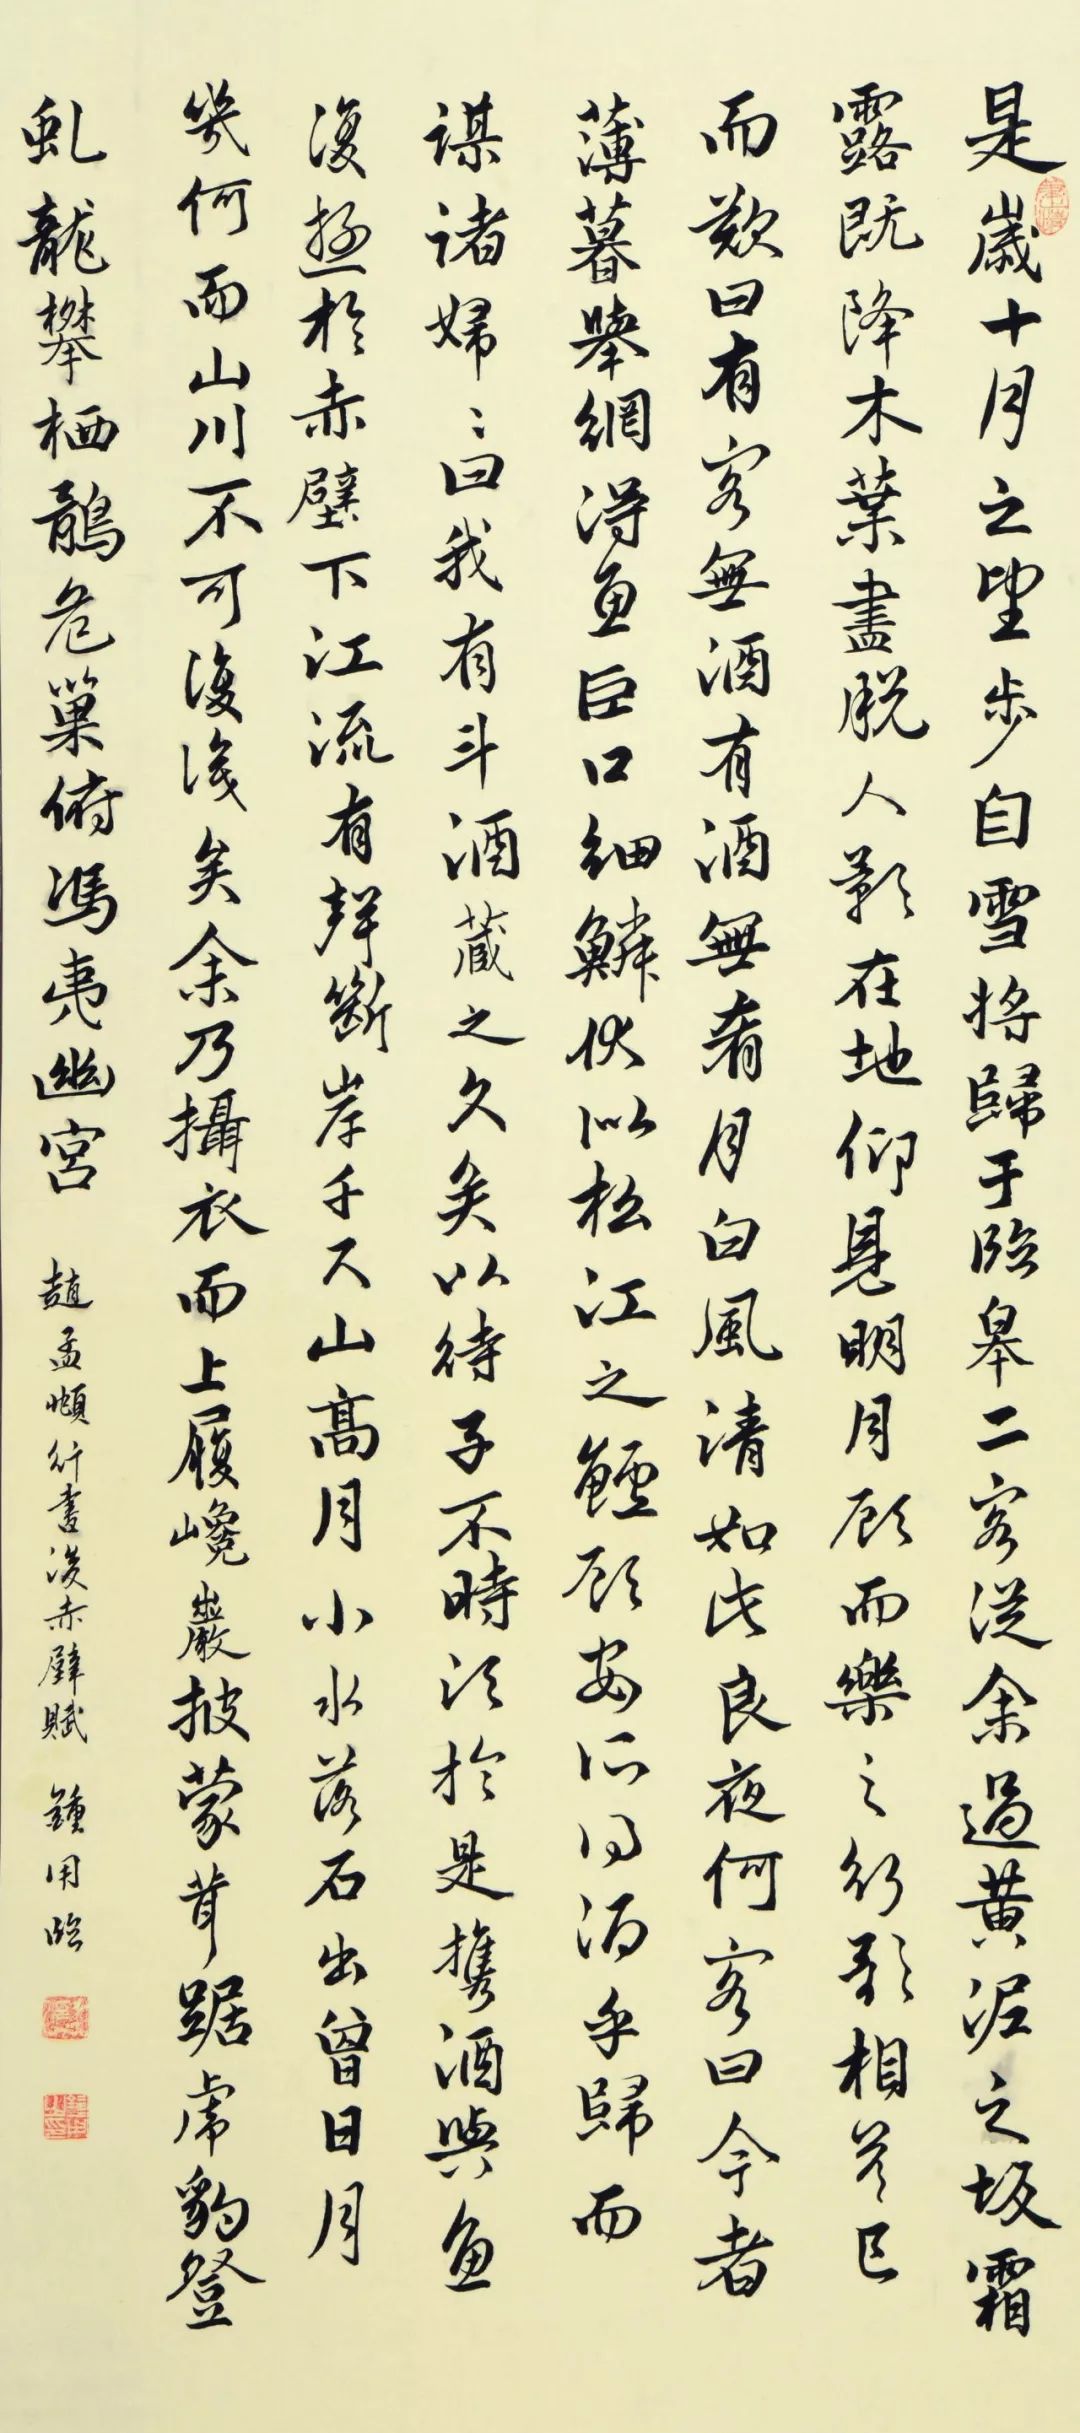 是歲十月之望步自雪將歸于臨皋二客從余過黃泥之坂霜
露既降木葉盡脫人影在地仰見明月顧而樂之行歌相答已
而歎曰有客無酒有酒無肴月白風清如此良夜何客曰今者
薄暮舉網得魚巨口細鱗伏似松江之鱸顧安所得酒乎歸而
謀諸婦〻曰我有斗酒藏之久矣以待子不時須於是携酒與魚
復遊於赤壁下江流有聲斷岸千尺山高月小水落石出曾日月
幾何而山川不可復識矣余乃攝衣而上履巉巖披蒙茸踞虎豹登
虬龍攀栖鶻危巢俯馮夷幽宮
趙孟頫行書後赤壁賦 鍾用臨